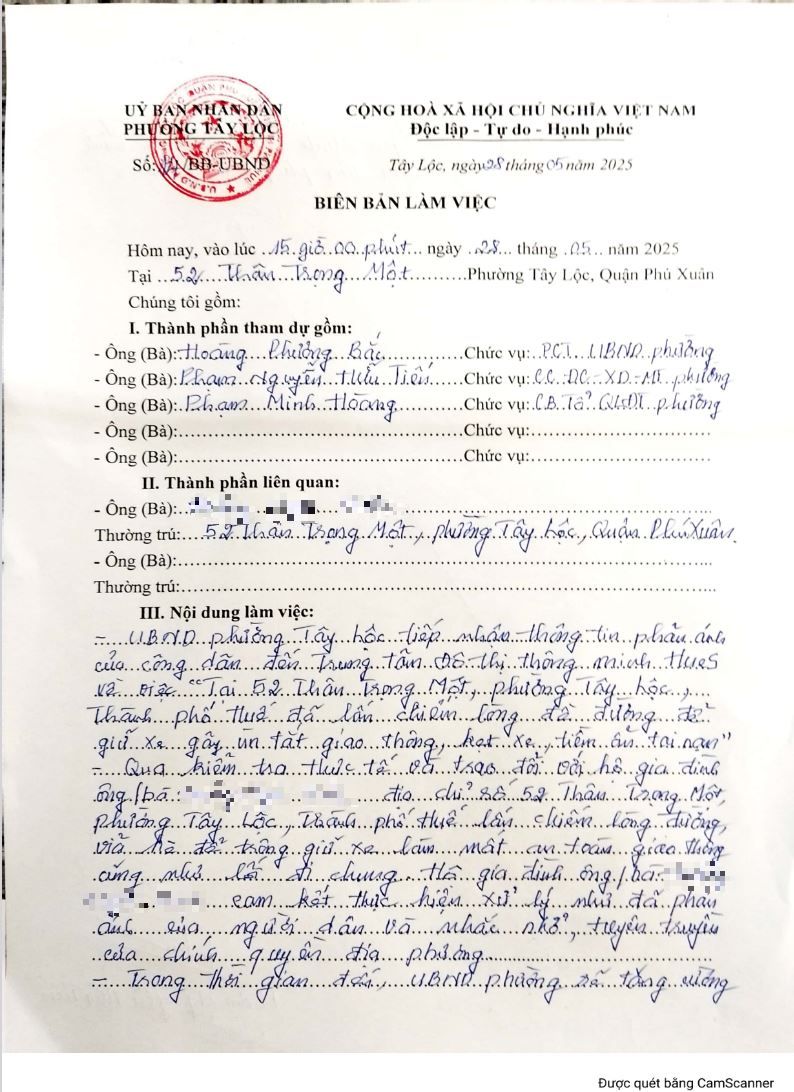 UỶ BAN NHÂN DÂN
PHƯỜNG TÂY LỘC
CỘNG HOÀ XÃ HỘI CHỦ NGHĨA VIỆT NAM
Độc lập - Tự do - Hạnh phúc
Số: /BB-UBND
Tây Lộc, ngày 28 tháng 05 năm 2025
BIÊN BẢN LÀM VIỆC
Hôm nay, vào lúc 15 giờ 00 phút ngày 28 tháng 05 năm 2025
Tại 52 Thân Trọng Một Phường Tây Lộc, Quận Phú Xuân
Chúng tôi gồm:
I. Thành phần tham dự gồm:
- Ông (Bà): Hoàng Phương Bắc Chức vụ: PCT UBND phường
- Ông (Bà): Phạm Nguyễn Hữu Tiến Chức vụ: CC ĐC-XD-MT phường
- Ông (Bà): Phạm Minh Hoàng Chức vụ: CB Tổ QLĐT phường
- Ông (Bà): Chức vụ:
- Ông (Bà): Chức vụ:
II. Thành phần liên quan:
- Ông (Bà):
Thường trú: 52 Thân Trọng Một, phường Tây Lộc, Quận Phú Xuân
- Ông (Bà):
Thường trú:
III. Nội dung làm việc:
- UBND phường Tây Lộc tiếp nhận thông tin phản ánh
của công dân đến Trung tâm Đô thị thông minh HueS
về việc "Tại 52 Thân Trọng Một, phường Tây Lộc,
Thành phố Huế đã lấn chiếm lòng đường để
giữ xe gây ùn tắt giao thông, kẹt xe, tiềm ẩn tai nạn"
- Qua kiểm tra thực tế và trao đổi với hộ gia đình
ông/bà: địa chỉ số 52 Thân Trọng Một,
phường Tây Lộc, Thành phố Huế lấn chiếm lòng đường,
vỉa hè để trông giữ xe làm mất an toàn giao thông
cũng như lối đi chung. Hộ gia đình ông/bà:
cam kết thực hiện xử lý như đã phản
ánh của người dân và nhắc nhở, tuyên truyền
của chính quyền địa phương
- Trong thời gian đến, UBND phường sẽ tăng cường
Được quét bằng CamScanner